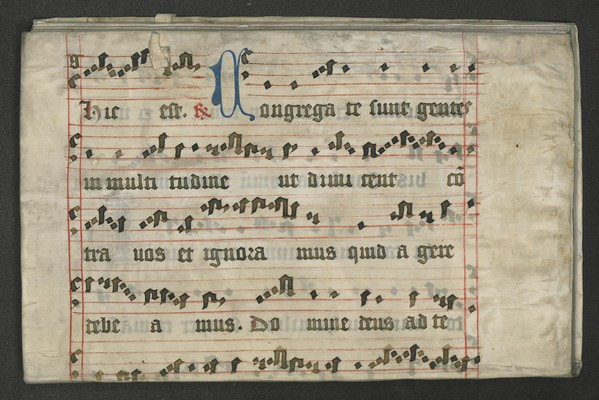 Hic est. R Congrega te sunt gentes
in multi tudine ut dimi cent cō
tra uos et ignora mus quid a gere
debe a mus. Do mine deus ad te